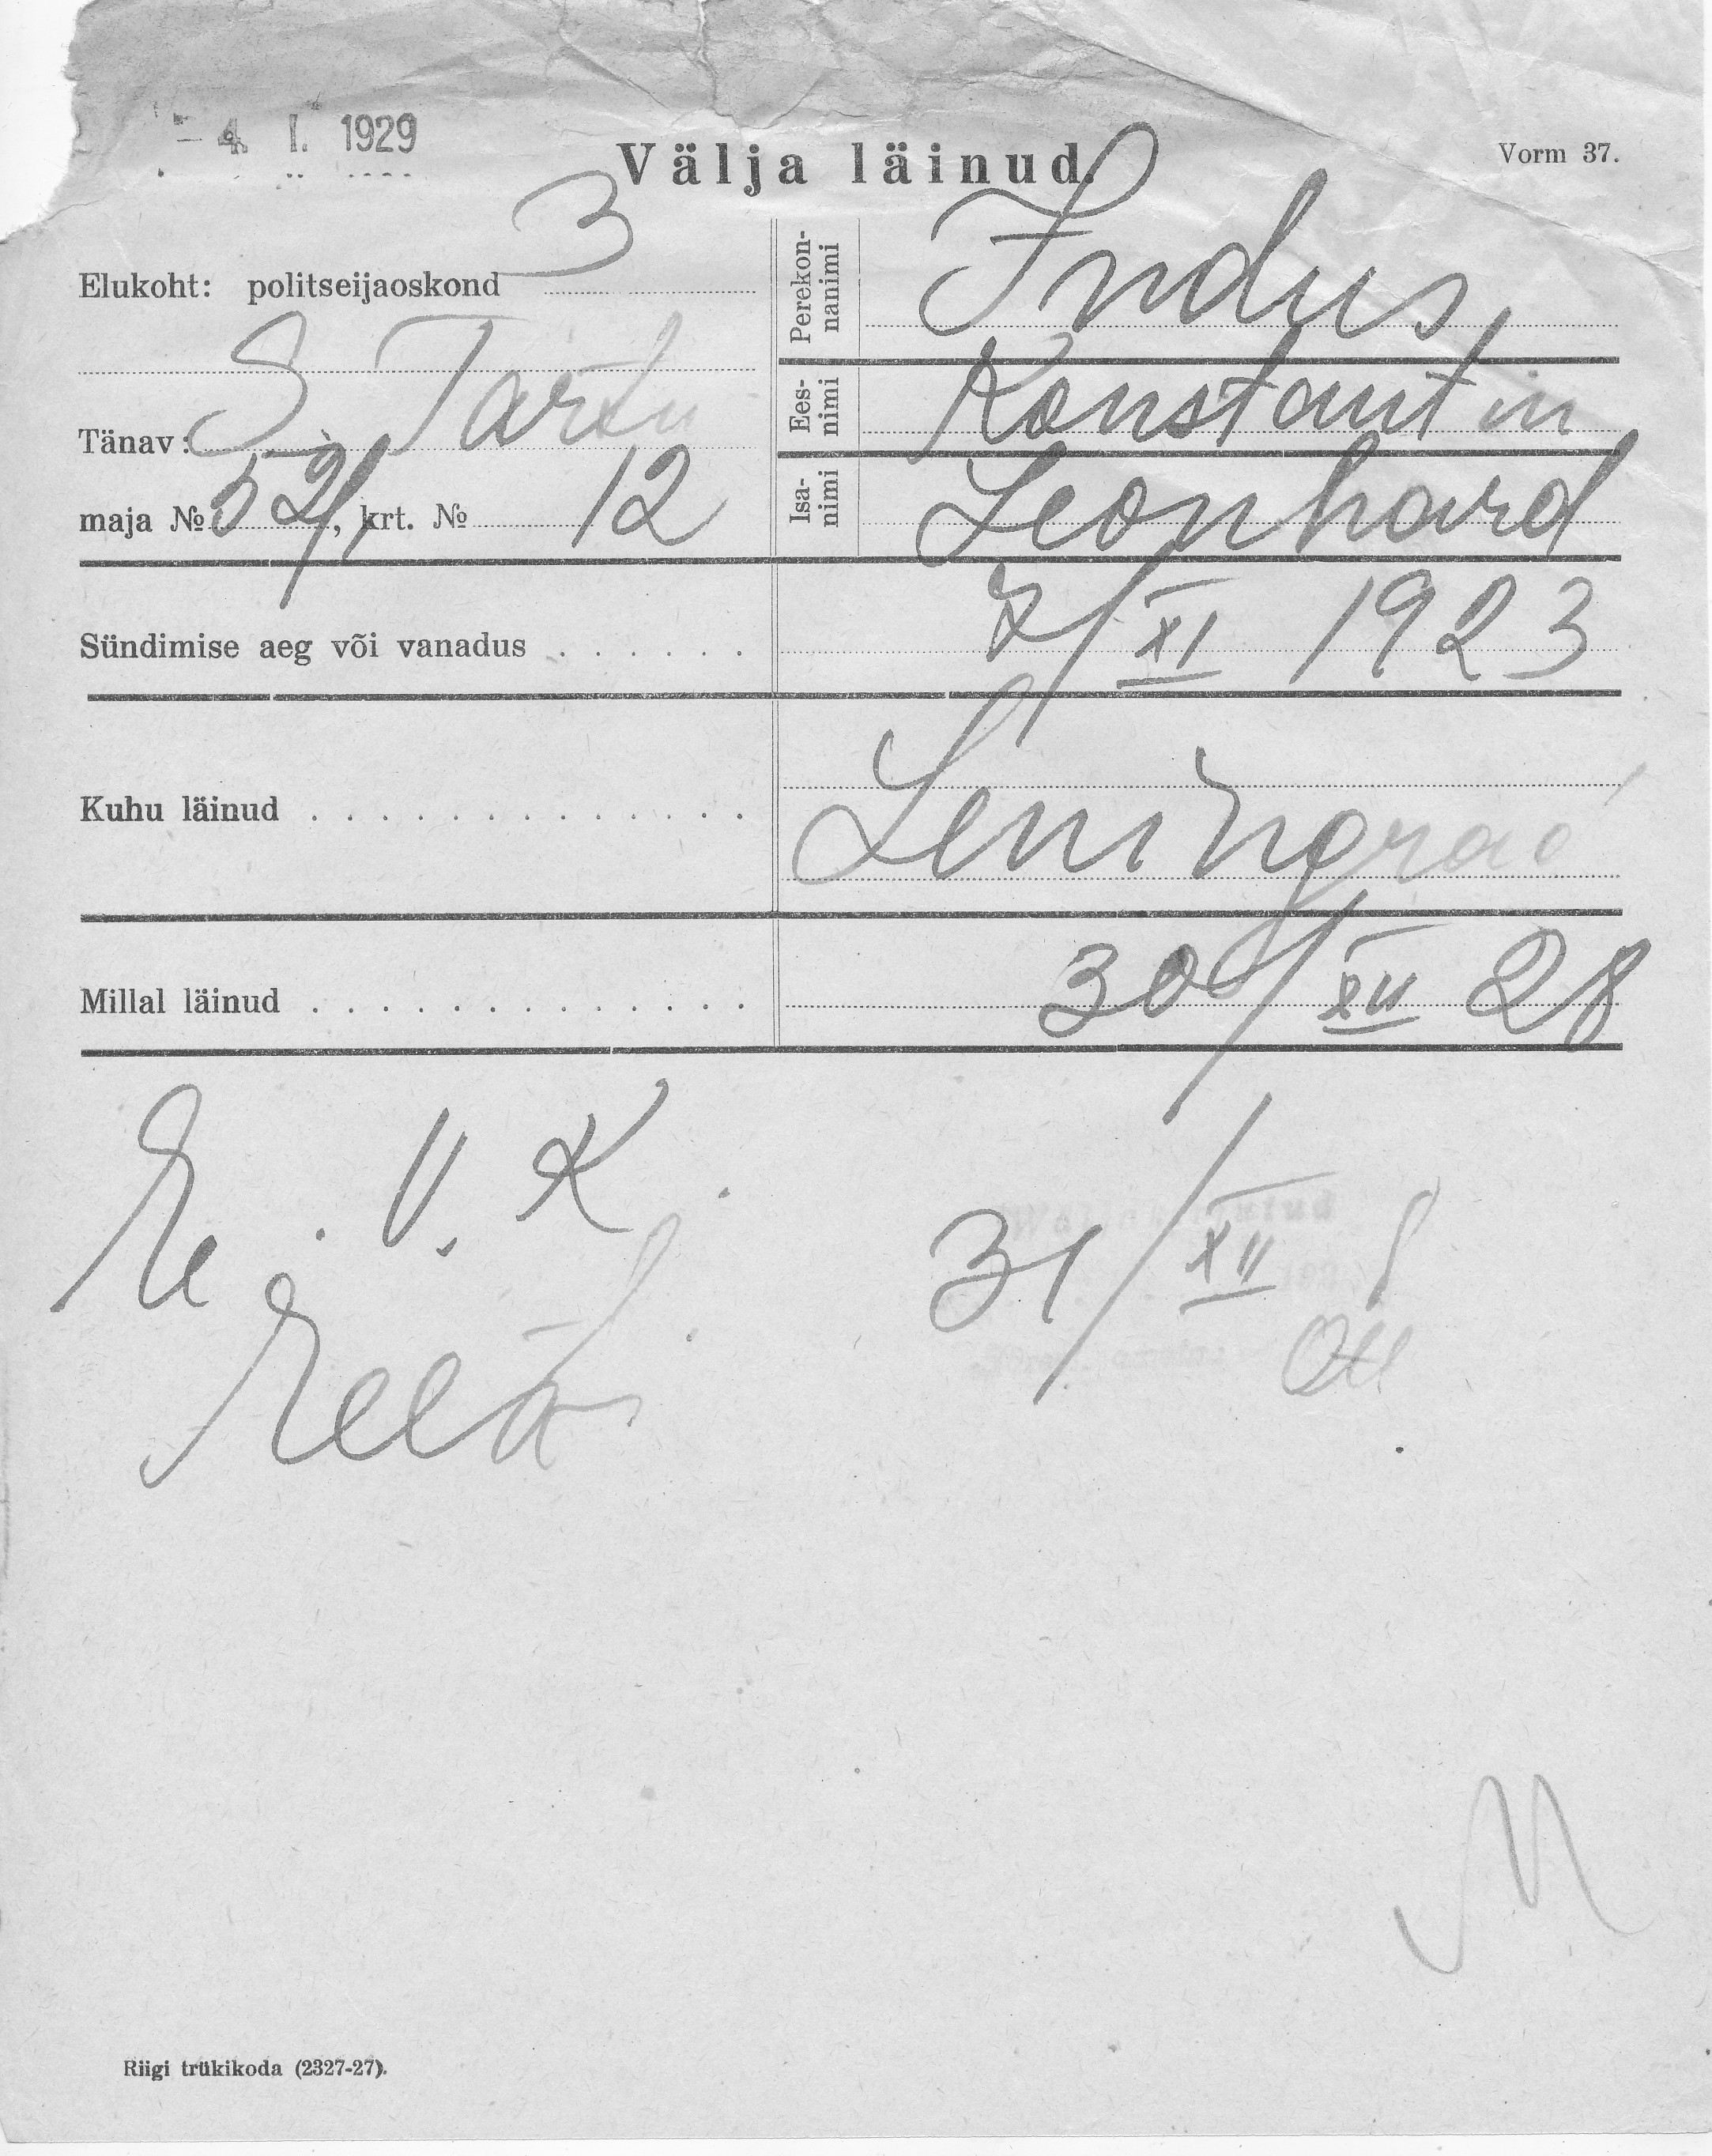 - 4. I. 1929
Välja läinud.
Vorm 37.
Elukoht: politseijaoskond 3
S. Tartu
Tänav:
maja № 52/, krt. № 12
Perekon-
nanimi
Indus,
Ees-
nimi
Konstantin
Isa-
nimi
Leonhard
Sündimise aeg või vanadus . . . . . .
7/XI 1923
Kuhu läinud . . . . . . . . . . . . .
Leningrad
Millal läinud . . . . . . . . . . . . .
30/XII 28
V. K.
31/XII 8
Riigi trükikoda (2327-27).